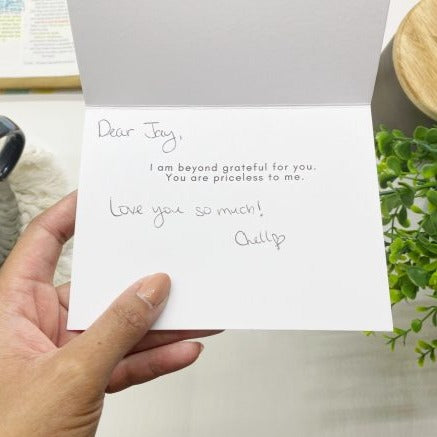 Dear Jay,
I am beyond grateful for you.
You are priceless to me.
Love you so much!
Chell